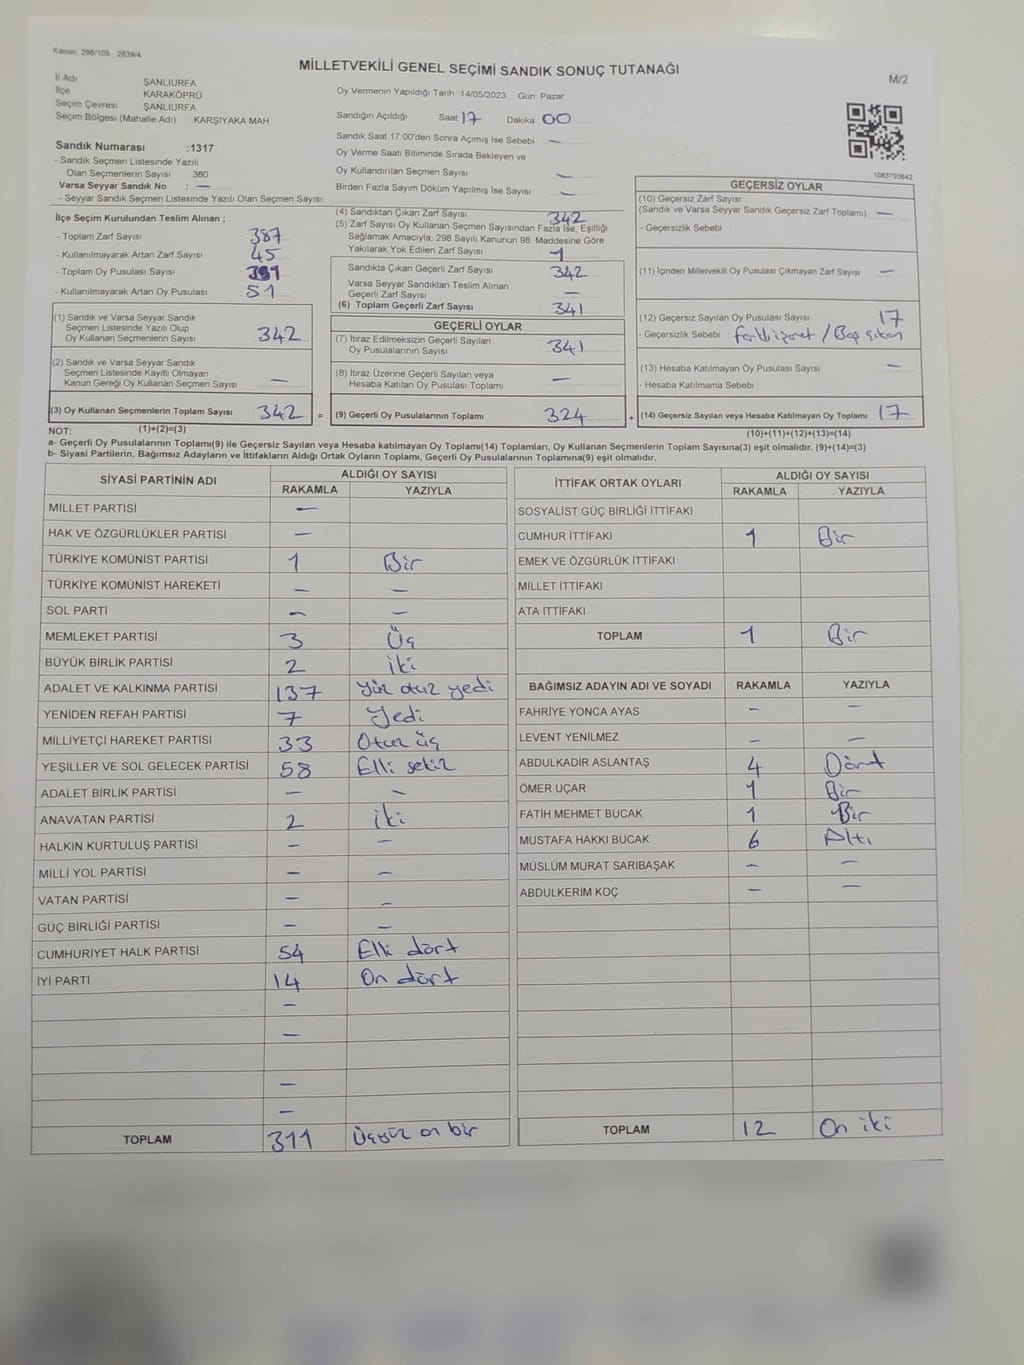 Kanun; 298/105 , 2839/4
MİLLETVEKİLİ GENEL SEÇİMİ SANDIK SONUÇ TUTANAĞI
M/2
İl Adı ŞANLIURFA
İlçe KARAKÖPRÜ
Seçim Çevresi ŞANLIURFA
Seçim Bölgesi (Mahalle Adı) : KARŞIYAKA MAH
Sandık Numarası :1317
- Sandık Seçmen Listesinde Yazılı
Olan Seçmenlerin Sayısı : 380
Varsa Seyyar Sandık No : —
- Seyyar Sandık Seçmen Listesinde Yazılı Olan Seçmen Sayısı:
Oy Vermenin Yapıldığı Tarih :14/05/2023 Gün: Pazar
Sandığın Açıldığı Saat 17 Dakika 00
Sandık Saat 17:00'den Sonra Açımış İse Sebebi : —
Oy Verme Saati Bitiminde Sırada Bekleyen ve
Oy Kullandırılan Seçmen Sayısı —
Birden Fazla Sayım Döküm Yapılmış İse Sayısı —
1083793642
İlçe Seçim Kurulundan Teslim Alınan ;
- Toplam Zarf Sayısı : 387
- Kullanılmayarak Artan Zarf Sayısı : 45
- Toplam Oy Pusulası Sayısı : 391
- Kullanılmayarak Artan Oy Pusulası : 51
(1) Sandık ve Varsa Seyyar Sandık
Seçmen Listesinde Yazılı Olup
Oy Kullanan Seçmenlerin Sayısı 342
(2) Sandık ve Varsa Seyyar Sandık
Seçmen Listesinde Kayıtlı Olmayan
Kanun Gereği Oy Kullanan Seçmen Sayısı —
(3) Oy Kullanan Seçmenlerin Toplam Sayısı 342 =
(1)+(2)=(3)
(4) Sandıktan Çıkan Zarf Sayısı 342
(5) Zarf Sayısı Oy Kullanan Seçmen Sayısından Fazla İse, Eşitliği
Sağlamak Amacıyla, 298 Sayılı Kanunun 98. Maddesine Göre
Yakılarak Yok Edilen Zarf Sayısı 1
Sandıkta Çıkan Geçerli Zarf Sayısı 342
Varsa Seyyar Sandıktan Teslim Alınan
Geçerli Zarf Sayısı —
(6) Toplam Geçerli Zarf Sayısı 341
GEÇERLİ OYLAR
(7) İtiraz Edilmeksizin Geçerli Sayılan
Oy Pusulalarının Sayısı 341
(8) İtiraz Üzerine Geçerli Sayılan veya
Hesaba Katılan Oy Pusulası Toplamı —
(9) Geçerli Oy Pusulalarının Toplamı 324 +
GEÇERSİZ OYLAR
(10) Geçersiz Zarf Sayısı
(Sandık ve Varsa Seyyar Sandık Geçersiz Zarf Toplamı) —
- Geçersizlik Sebebi :
(11) İçinden Milletvekili Oy Pusulası Çıkmayan Zarf Sayısı —
(12) Geçersiz Sayılan Oy Pusulası Sayısı 17
- Geçersizlik Sebebi : / Boş
(13) Hesaba Katılmayan Oy Pusulası Sayısı —
- Hesaba Katılmama Sebebi :
(14) Geçersiz Sayılan veya Hesaba Katılmayan Oy Toplamı 17
(10)+(11)+(12)+(13)=(14)
NOT:
a- Geçerli Oy Pusulalarının Toplamı(9) ile Geçersiz Sayılan veya Hesaba katılmayan Oy Toplamı(14) Toplamları, Oy Kullanan Seçmenlerin Toplam Sayısına(3) eşit olmalıdır. (9)+(14)=(3)
b- Siyasi Partilerin, Bağımsız Adayların ve İttifakların Aldığı Ortak Oyların Toplamı, Geçerli Oy Pusulalarının Toplamına(9) eşit olmalıdır.
SİYASİ PARTİNİN ADI ALDIĞI OY SAYISI
RAKAMLA YAZIYLA
MİLLET PARTİSİ —
HAK VE ÖZGÜRLÜKLER PARTİSİ —
TÜRKİYE KOMÜNİST PARTİSİ 1 Bir
TÜRKİYE KOMÜNİST HAREKETİ — —
SOL PARTİ — —
MEMLEKET PARTİSİ 3 Üç
BÜYÜK BİRLİK PARTİSİ 2 iki
ADALET VE KALKINMA PARTİSİ 137 Yüz otuz yedi
YENİDEN REFAH PARTİSİ 7 Yedi
MİLLİYETÇİ HAREKET PARTİSİ 33 Otuz üç
YEŞİLLER VE SOL GELECEK PARTİSİ 58 Elli sekiz
ADALET BİRLİK PARTİSİ — —
ANAVATAN PARTİSİ 2 iki
HALKIN KURTULUŞ PARTİSİ — —
MİLLİ YOL PARTİSİ — —
VATAN PARTİSİ — —
GÜÇ BİRLİĞİ PARTİSİ — —
CUMHURİYET HALK PARTİSİ 54 Elli dört
İYİ PARTİ 14 On dört
—
—
—
—
TOPLAM 311 Üçyüz on bir
İTTİFAK ORTAK OYLARI ALDIĞI OY SAYISI
RAKAMLA YAZIYLA
SOSYALİST GÜÇ BİRLİĞİ İTTİFAKI
CUMHUR İTTİFAKI 1 Bir
EMEK VE ÖZGÜRLÜK İTTİFAKI
MİLLET İTTİFAKI
ATA İTTİFAKI
TOPLAM 1 Bir
BAĞIMSIZ ADAYIN ADI VE SOYADI RAKAMLA YAZIYLA
FAHRİYE YONCA AYAS — —
LEVENT YENİLMEZ — —
ABDULKADİR ASLANTAŞ 4 Dört
ÖMER UÇAR 1 Bir
FATİH MEHMET BUCAK 1 Bir
MUSTAFA HAKKI BUCAK 6 Altı
MÜSLÜM MURAT SARIBAŞAK — —
ABDULKERİM KOÇ — —
TOPLAM 12 On iki